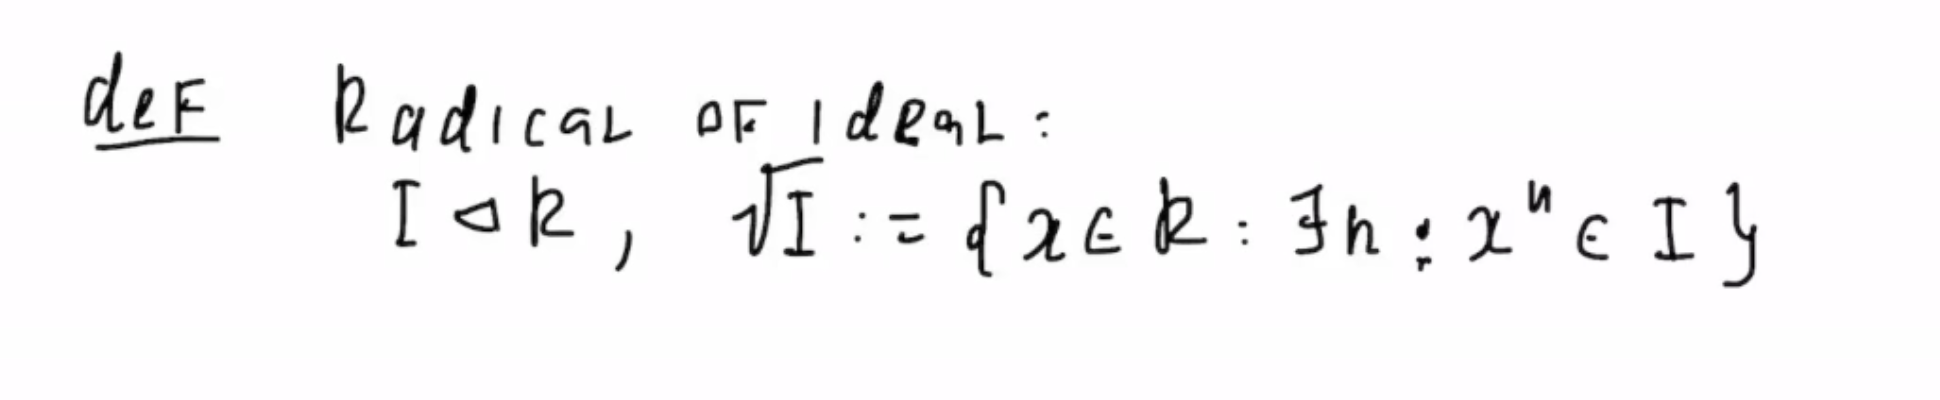 def Radical of ideal:
I ◁ R, √I := {x ∈ R : ∃n : xⁿ ∈ I}